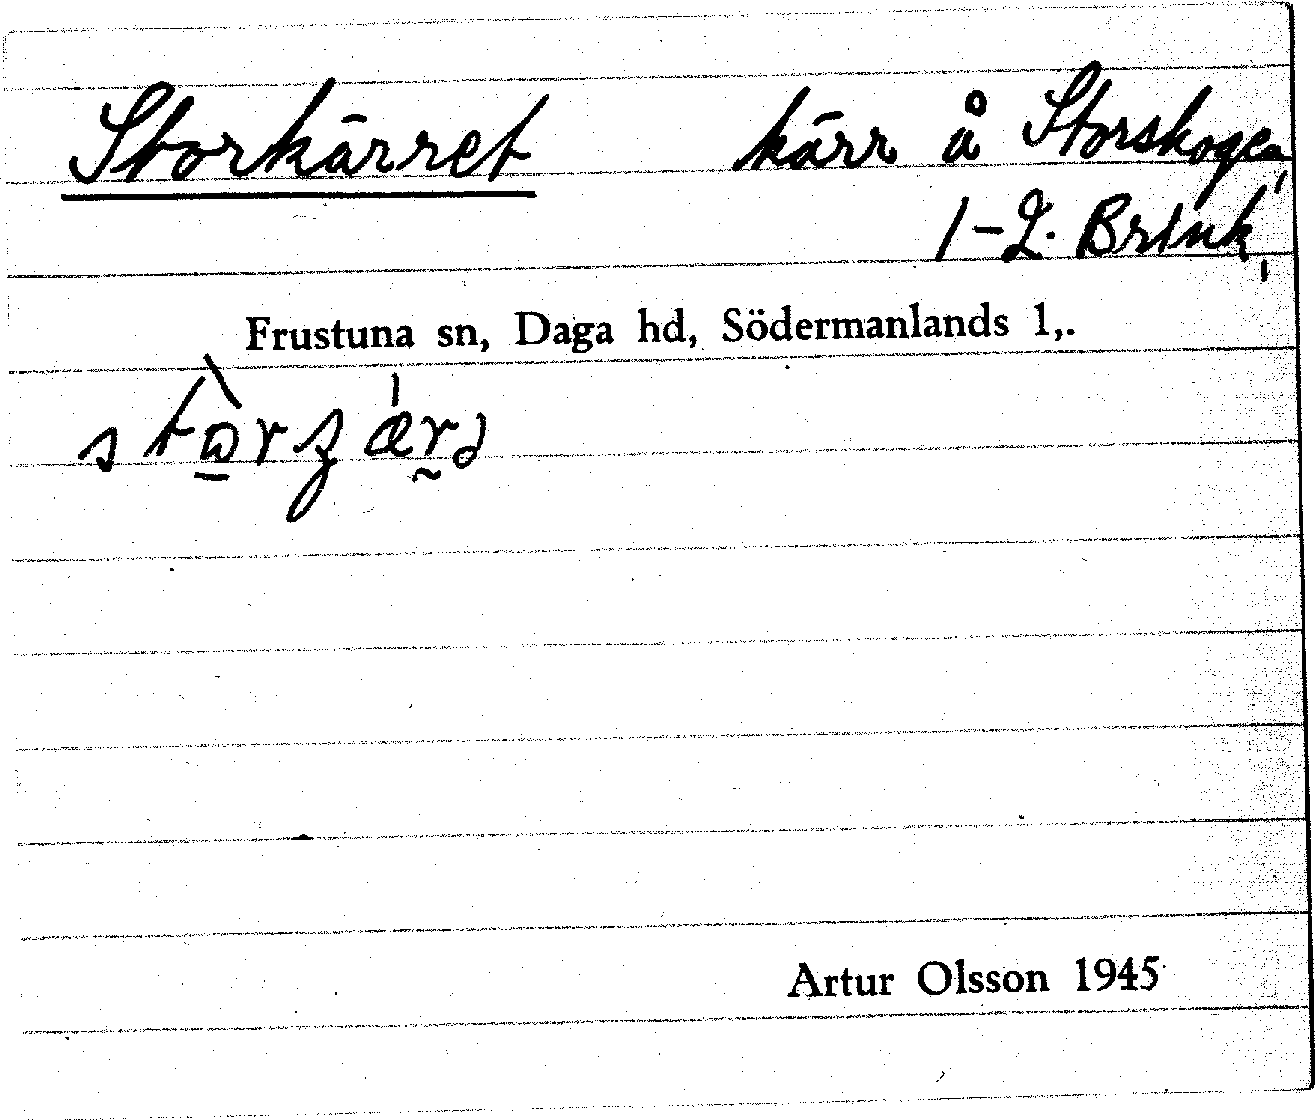 Storkärret kärr å Storskogen,
1-2. Brink,
Frustuna sn, Daga hd, Södermanlands 1,.
Artur Olsson 1945